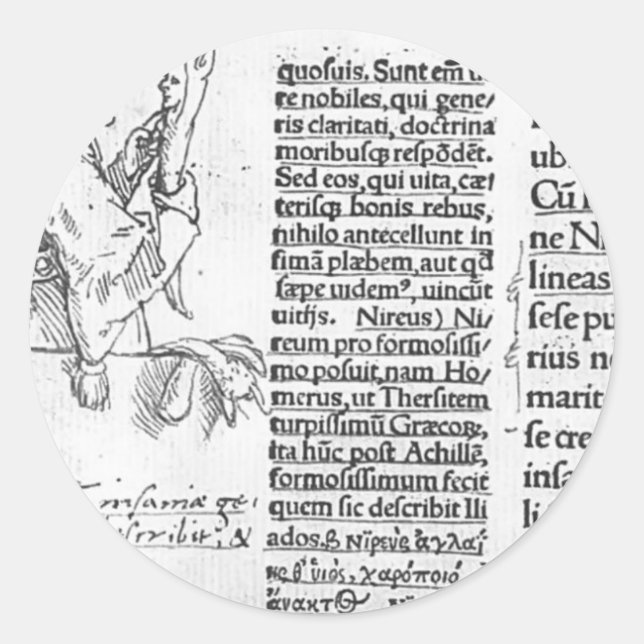 quoſuis. Sunt em̄
re nobiles, qui gene/
ris claritati, doctrina
moribuſqꝫ reſpōdēt.
Sed eos, qui uita, cæ/
teriſqꝫ bonis rebus,
nihilo antecellunt in
fimā plæbem, aut qđ
ſæpe uidemꝰ, uincūt
uitijs. Nireus) Ni/
reum pro formoſiſſi/
mo poſuit, nam Ho/
merus, ut Therſitem
turpiſſimū Græcoꝝ,
ita hūc poſt Achillē,
formoſiſſimum fecit
quem ſic deſcribit Ili
ados. β Νιρεὺς ἀγλαΐ
ης θ' ὑιὸς, χαρόποιό
ἀνακτ
ub
Cū
ne N
lineas
ſeſe pu
rius n
marit
ſe cre
inſa
li
Insaniæ ge
&